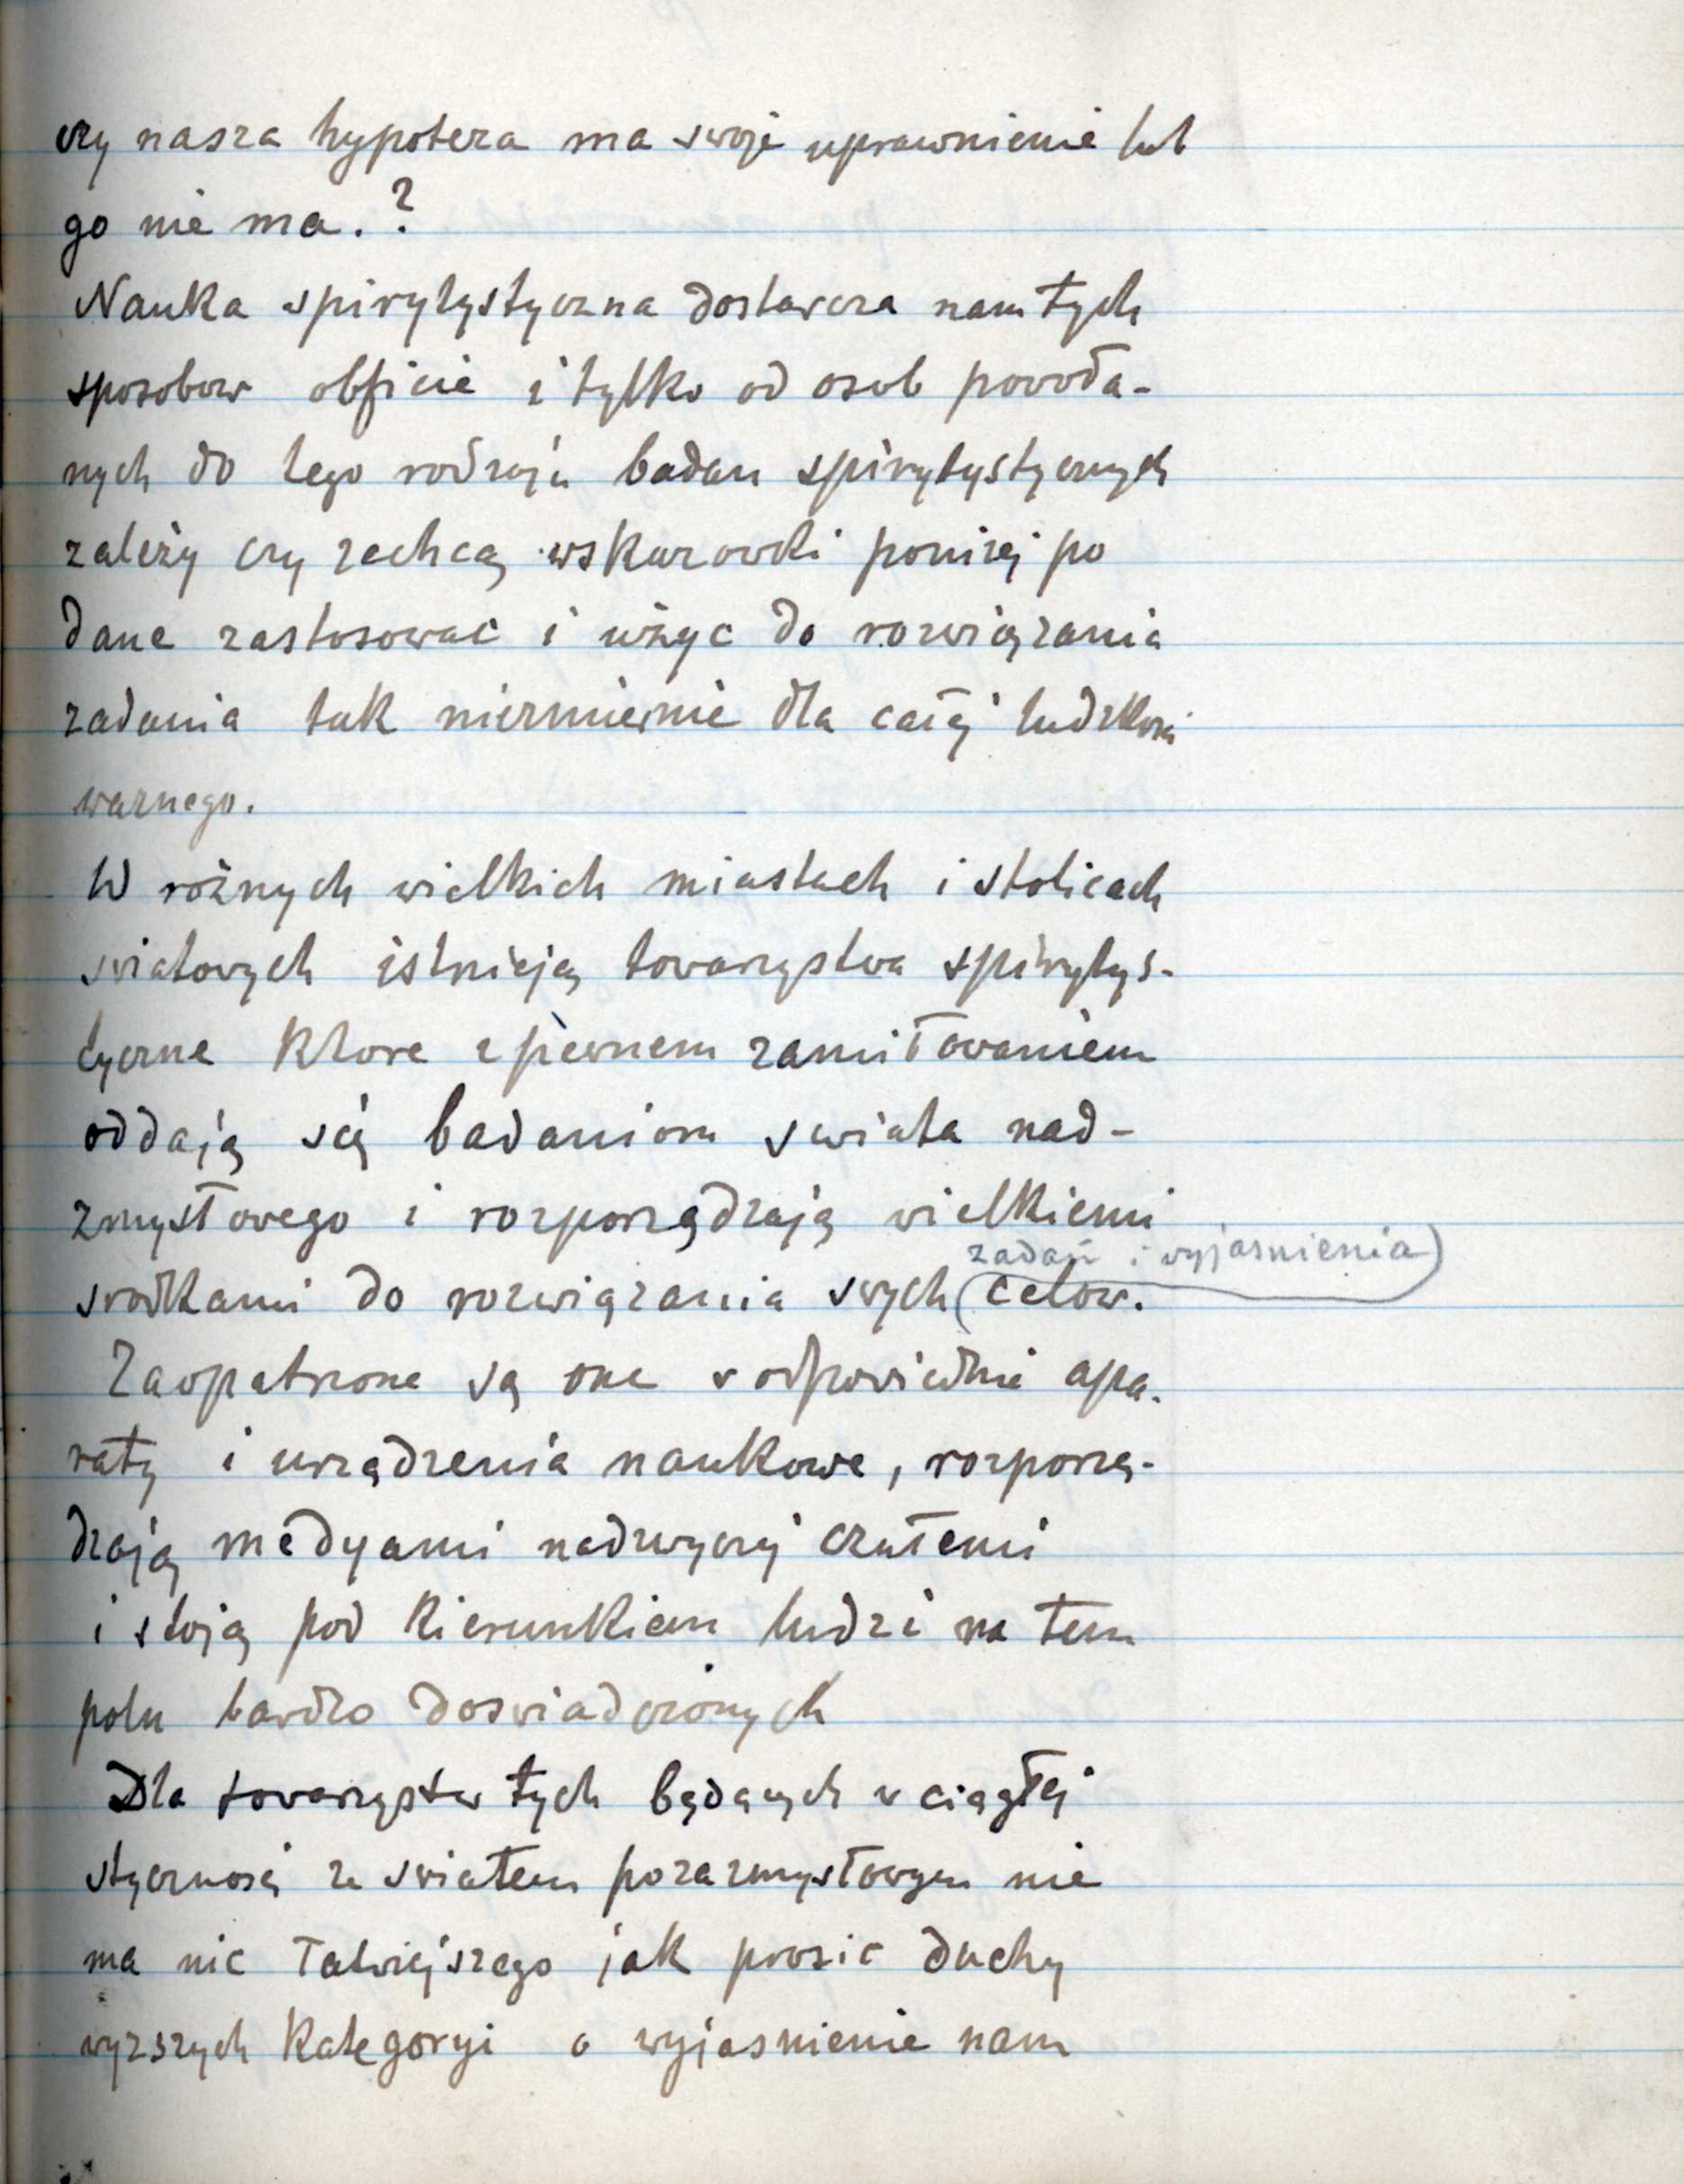 czy nasza hypoteza ma swoje uprawnienie lub
go nie ma.?
Nauka spirytystyczna dostarcza nam tych
sposobow obficie i tylko od osob powoła-
nych do tego rodzaju badan spirytystycznych
zależy czy zechcą wskazowki ponizej po
dane zastosowac i użyc do rozwiązania
zadania tak niezmiernie dla całej ludzkosci
waznego.
W różnych wielkich miastach i stolicach
swiatowych istnieją towarzystwa spirytys-
tyczne ktore z pewnem zamiłowaniem
oddają się badaniom swiata nad-
zmysłowego i rozporządzają wielkiemi
zadań i wyjasnienia)
srodkami do rozwiązania swych (celow.
Zaopatrzone są one w odpowiednie apa-
raty i urządzenia naukowe, rozporzą-
dzają medyami nadzwyczaj czułemi
i stoją pod kierunkiem ludzi na tem
polu bardzo doswiadczonych
Dla towarzystw tych będących w ciągłej
stycznosci ze swiatem pozazmysłowym nie
ma nic łatwiejszego jak prosic duchy
wyzszych kategoryi o wyjasnienie nam